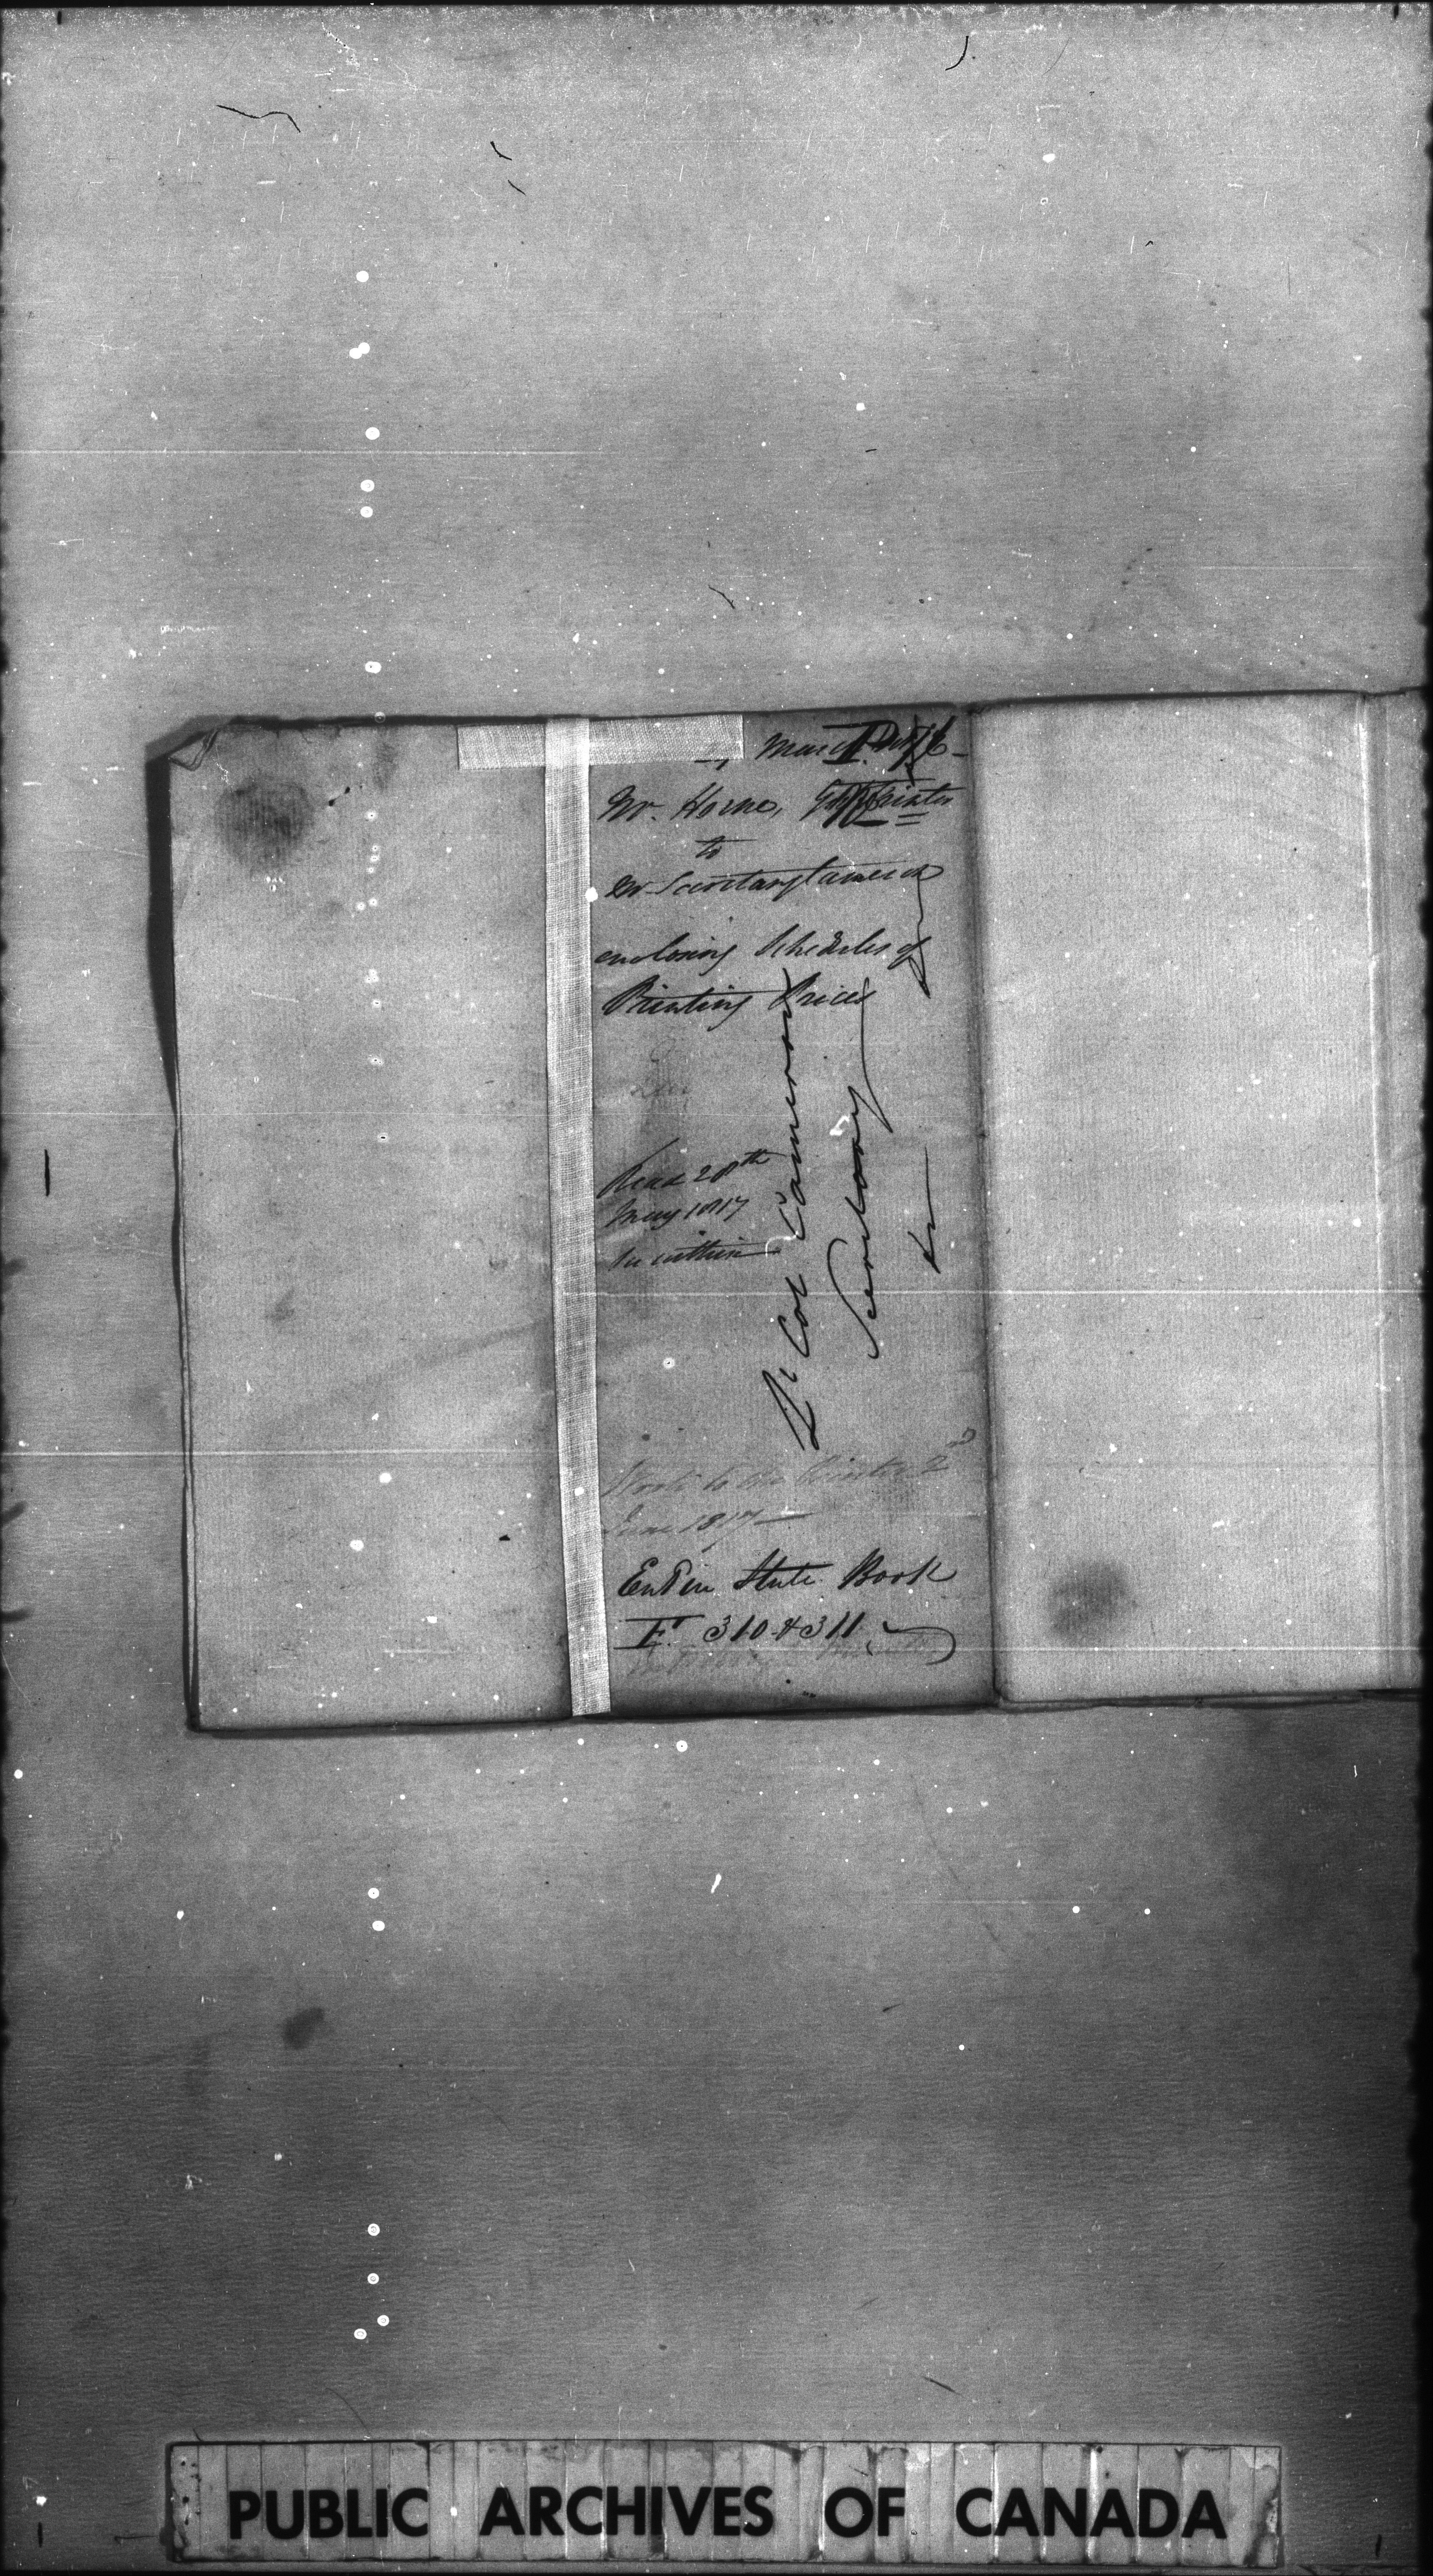 March
Mr. Horne, Printer
to
Mr. Secretary Cameron
enclosing Schedules of
Printing Prices
Read 28th
May 1817
See within
Lt Col Cameron
Secretary
&c
to the Printer 2nd
June 1817
Entd in State Book
F. 310 & 311
PUBLIC ARCHIVES OF CANADA